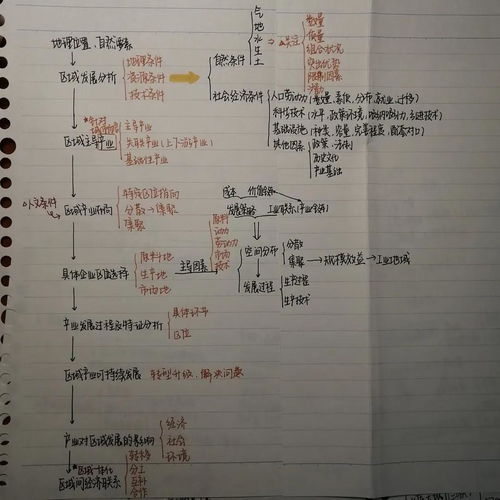 地理位置、自然要素
区域发展分析
地理条件
资源条件
技术条件
自然条件
气
地
水
生
土
关注
数量
质量
组合状况
突出优势
限制因素
社会经济条件
人口劳动力(数量、素质、分布、就业、迁移)
科学技术
基础设施
其他因素
政策、法律
历史文化
产业基础
区域主导产业
主导产业
关联产业(上下游产业)
基础性产业
区域产业布局
特定区位指向
分散→集聚
集聚
成本
发展策略
工业联系
空间分布
分散
集聚→规模效益→工业地域
发展过程
生产过程
生产技术
具体企业区位选择
原料地
生产地
市场地
主导因素
原料
动力
劳动力
市场
技术
产业发展过程及特征分析
具体环节
区位
区域产业可持续发展
转型升级、解决问题
产业对区域发展的影响
经济
社会
环境
区域一体化
区域间经济联系
转移
分工
互补
合作